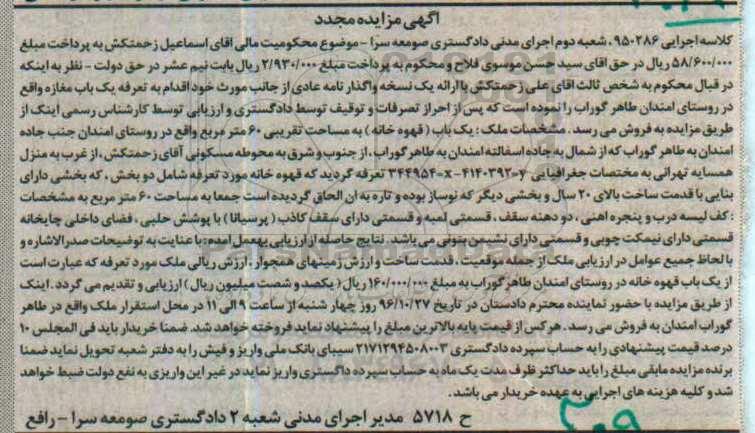 آگهی مزایده مجدد
کلاسه اجرایی ۹۵۰۲۸۶، شعبه دوم اجرای مدنی دادگستری صومعه سرا - موضوع محکومیت مالی آقای اسماعیل زحمتکش به پرداخت مبلغ
۵۸/۶۰۰/۰۰۰ ریال در حق اقای سید حسن موسوی فلاح و محکوم به پرداخت مبلغ ۲/۹۳۰/۰۰۰ ریال بابت نیم عشر در حق دولت - نظر به اینکه
در قبال محکوم به شخص ثالث اقای علی زحمتکش با ارائه یک نسخه واگذار نامه عادی از جانب مورث خود اقدام به تعرفه یک باب مغازه واقع
در روستای امندان طاهر گوراب را نموده است که پس از احراز تصرفات و توقیف توسط دادگستری و ارزیابی توسط کارشناس رسمی اینک از
طریق مزایده به فروش می رسد. مشخصات ملک: یک باب (قهوه خانه) به مساحت تقریبی ۶۰ متر مربع واقع در روستای امندان جنب جاده
امندان به طاهر گوراب که از شمال به جاده اسفالته امندان به طاهر گوراب، از جنوب و شرق به محوطه مسکونی آقای زحمتکش، از غرب به منزل
همسایه تهرانی به مختصات جغرافیایی y=۴۱۴۰۳۹۲ - x=۳۴۴۹۵۴ تعرفه گردید که قهوه خانه مورد تعرفه شامل دو بخش، که بخشی دارای
بنایی با قدمت ساخت بالای ۲۰ سال و بخشی دیگر که نوساز بوده و تازه به ان الحاق گردیده است جمعا به مساحت ۶۰ متر مربع به مشخصات
: کف لیسه درب و پنجره اهنی، دو دهنه سقف، قسمتی لمبه و قسمتی دارای سقف کاذب (پرسیانا) با پوشش حلبی، فضای داخلی چایخانه
قسمتی دارای نیمکت چوبی و قسمتی دارای نشیمن بتونی می باشد. نتایج حاصله از ارزیابی بهعمل آمده: با عنایت به توضیحات صدرالاشاره و
با لحاظ جمیع عوامل در ارزیابی ملک از جمله موقعیت، قدمت ساخت و ارزش زمینهای همجوار، ارزش ریالی ملک مورد تعرفه که عبارت است
از یک باب قهوه خانه در روستای امندان طاهر گوراب به مبلغ ۱۶۰/۰۰۰/۰۰۰ ریال (یکصد و شصت میلیون ریال) ارزیابی و تقدیم می گردد. اینک
از طریق مزایده با حضور نماینده محترم دادستان در تاریخ ۹۶/۱۰/۲۷ روز چهار شنبه از ساعت ۹ الی ۱۱ در محل استقرار ملک واقع در طاهر
گوراب امندان به فروش می رسد. هر کس از قیمت پایه بالاترین مبلغ را پیشنهاد نماید فروخته خواهد شد. ضمنا خریدار باید فی المجلس ۱۰
درصد قیمت پیشنهادی را به حساب سپرده دادگستری ۲۱۷۱۲۹۴۵۰۸۰۰۳ سیبای بانک ملی واریز و فیش را به دفتر شعبه تحویل نماید ضمنا
برنده مزایده مابقی مبلغ را باید حداکثر ظرف مدت یک ماه به حساب سپرده داگستری واریز نماید در غیر این واریزی به نفع دولت ضبط خواهد
شد و کلیه هزینه های اجرایی به عهده خریدار می باشد.
ح ۵۷۱۸ مدیر اجرای مدنی شعبه ۲ دادگستری صومعه سرا - رافع